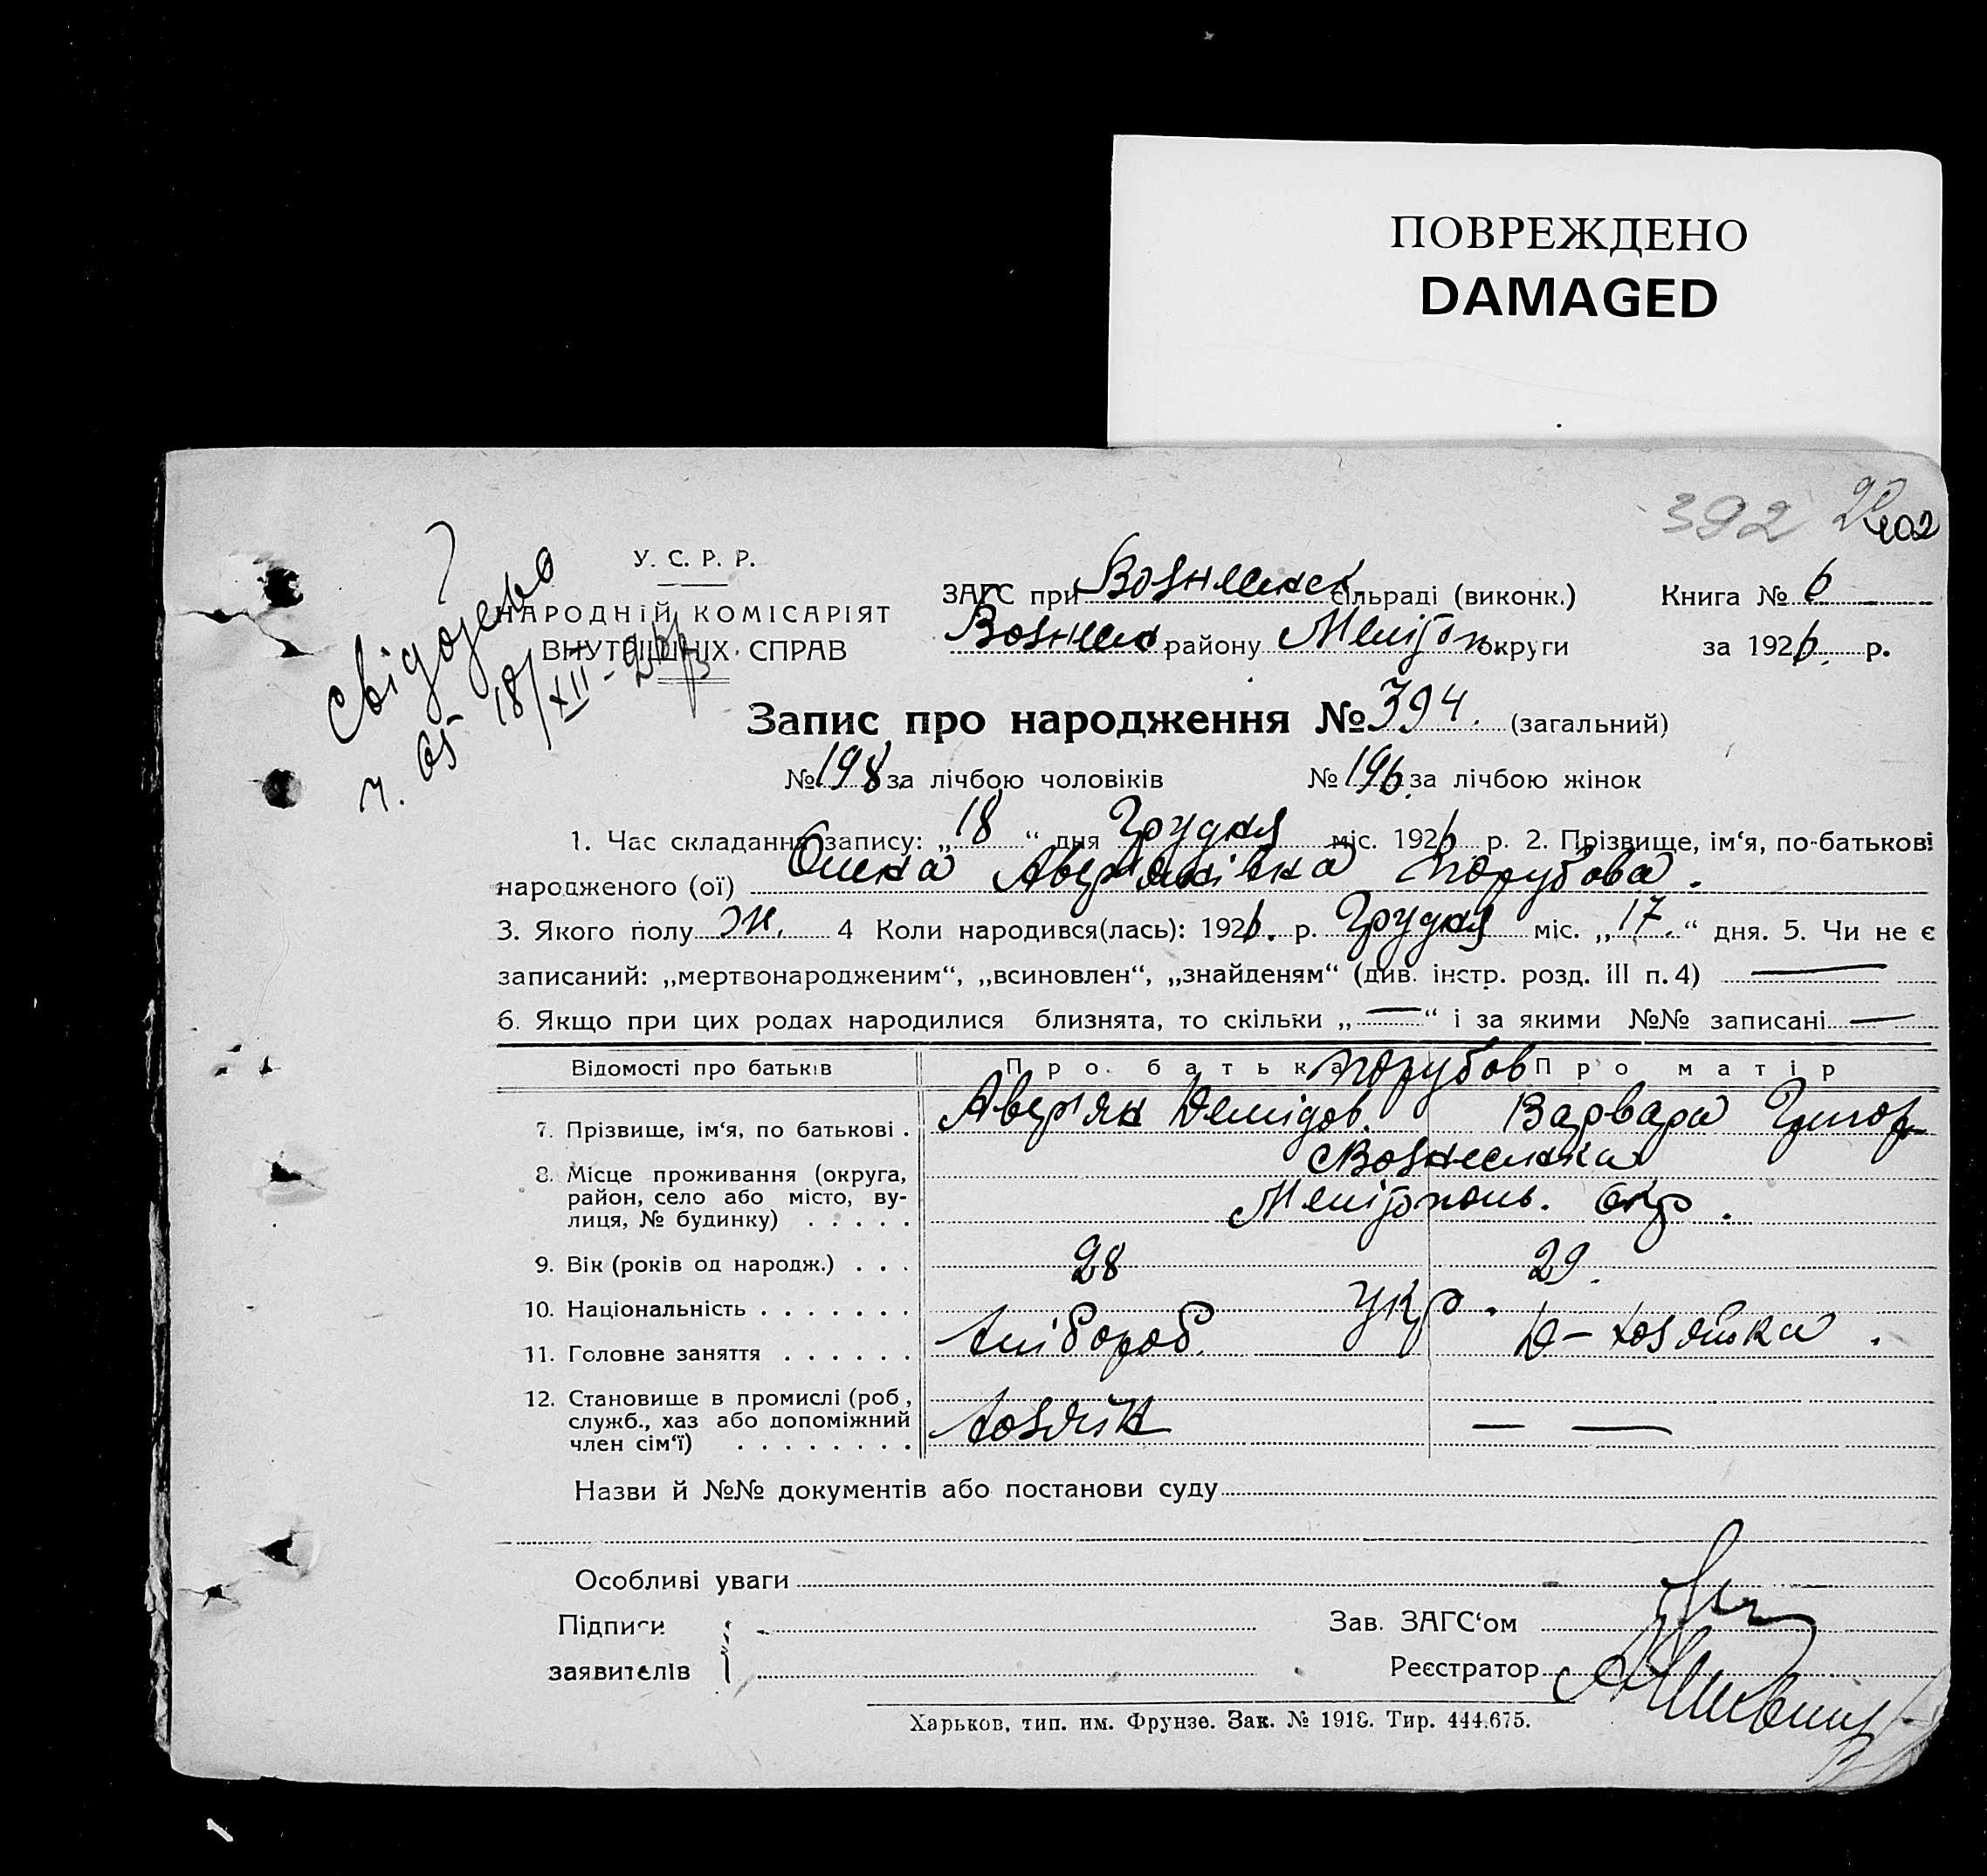 ПОВРЕЖДЕНО
DAMAGED
392
402
У. С. Р. Р.
НАРОДНІЙ КОМІСАРІЯТ
ВНУТРІШНІХ СПРАВ
ЗАГС при Вознесенск сільраді (виконк.) Книга № 6
району Мелітоп. округи за 1926. р.
Запис про народження № 394. (загальний)
№ 198 за лічбою чоловіків № 196. за лічбою жінок
1. Час складання запису: „18“ дня Грудня міс. 1926 р. 2. Прізвище, ім‘я, по-батькові
народженого (ої) Аверʼянівна Порубова.
3. Якого полу Ж. 4 Коли народився(лась): 1926. р. Грудня міс. „17.“ дня. 5. Чи не є
записаний: „мертвонародженим“, „всиновлен“, „знайденям“ (див. інстр. розд. III п. 4) —
6. Якщо при цих родах народилися близнята, то скільки „—“ і за якими №№ записані —
Відомості про батьків Про батька Порубов Про матір
7. Прізвище, ім‘я, по батькові . Аверʼян Демідов. Варвара Григор
8. Місце проживання (округа, Вознесенка
район, село або місто, ву-
лиця, № будинку) . . . . . Мелітополь. Окр.
9. Вік (років од народж.) . . . 28 29.
10. Національність . . . . . . . Укр.
11. Головне заняття . . . . . . Хлібороб. Д-хозяйка.
12. Становище в промислі (роб ,
служб., хаз або допоміжний
член сім‘ї) . . . . . . . . Хозяїн — —
Назви й №№ документів або постанови суду
Особливі уваги
Підписи
заявителів
Зав. ЗАГС‘ом
Реєстратор
Харьков, тип. им. Фрунзе. Зак. № 1918. Тир. 444.675.